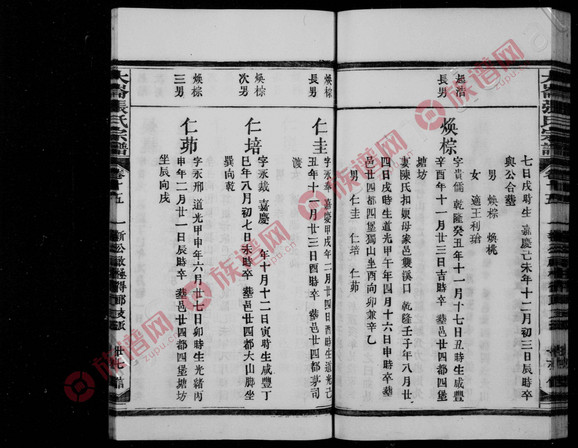 七日戌時生 嘉慶己未年十二月初三日辰時卒
與公合塟
男 煥棕 煥桃
女 適王利瑃
起浩長男
煥棕
字貴儒 乾隆癸丑年十一月十七日丑時生咸豐
辛酉年十一月廿三日吉時卒 塟邑廿四都四堡
塘坊
妻陳氏扣娘母家邑襲溪口 乾隆壬子年八月廿
五日戌時生道光甲午年四月十六日申時卒 塟
邑廿四都四堡獨山坐酉向卯兼辛乙
男 仁圭 仁培 仁茆
煥棕長男
仁圭
字永奉 嘉慶甲戌年二月廿四日酉時生道光己
丑年十一月廿三日酉時卒 塟邑廿四都茅司
煥棕次男
仁培
字永裁 嘉慶 年十月十二日寅時生咸豐丁
巳年八月初七日未時卒 塟邑廿四都大山脚坐
巽向乾
煥棕三男
仁茆
字永邢 道光甲申年六月廿七日卯時生光緒丙
申年二月廿一日辰時卒 塟邑廿四都四堡塘坊
坐辰向戌
張氏宗譜
卷十五
族谱网
zupu.cn